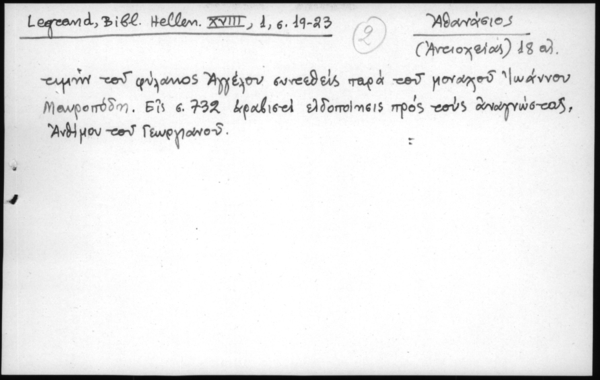 Legrand, Bibl. Hellen. XVIII, 1, σ. 19-23
2
Ἀθανάσιος
(Ἀντιοχείας) 18 αἰ.
τιμὴν τοῦ φύλακος Ἀγγέλου συντεθεὶς παρὰ τοῦ μοναχοῦ Ἰωάννου
Μαυροπόδη. Εἰς σ. 732 ἀραβιστὶ εἰδοποίησις πρὸς τοὺς ἀναγνώστας,
Ἀνθίμου τοῦ Γεωργιανοῦ.